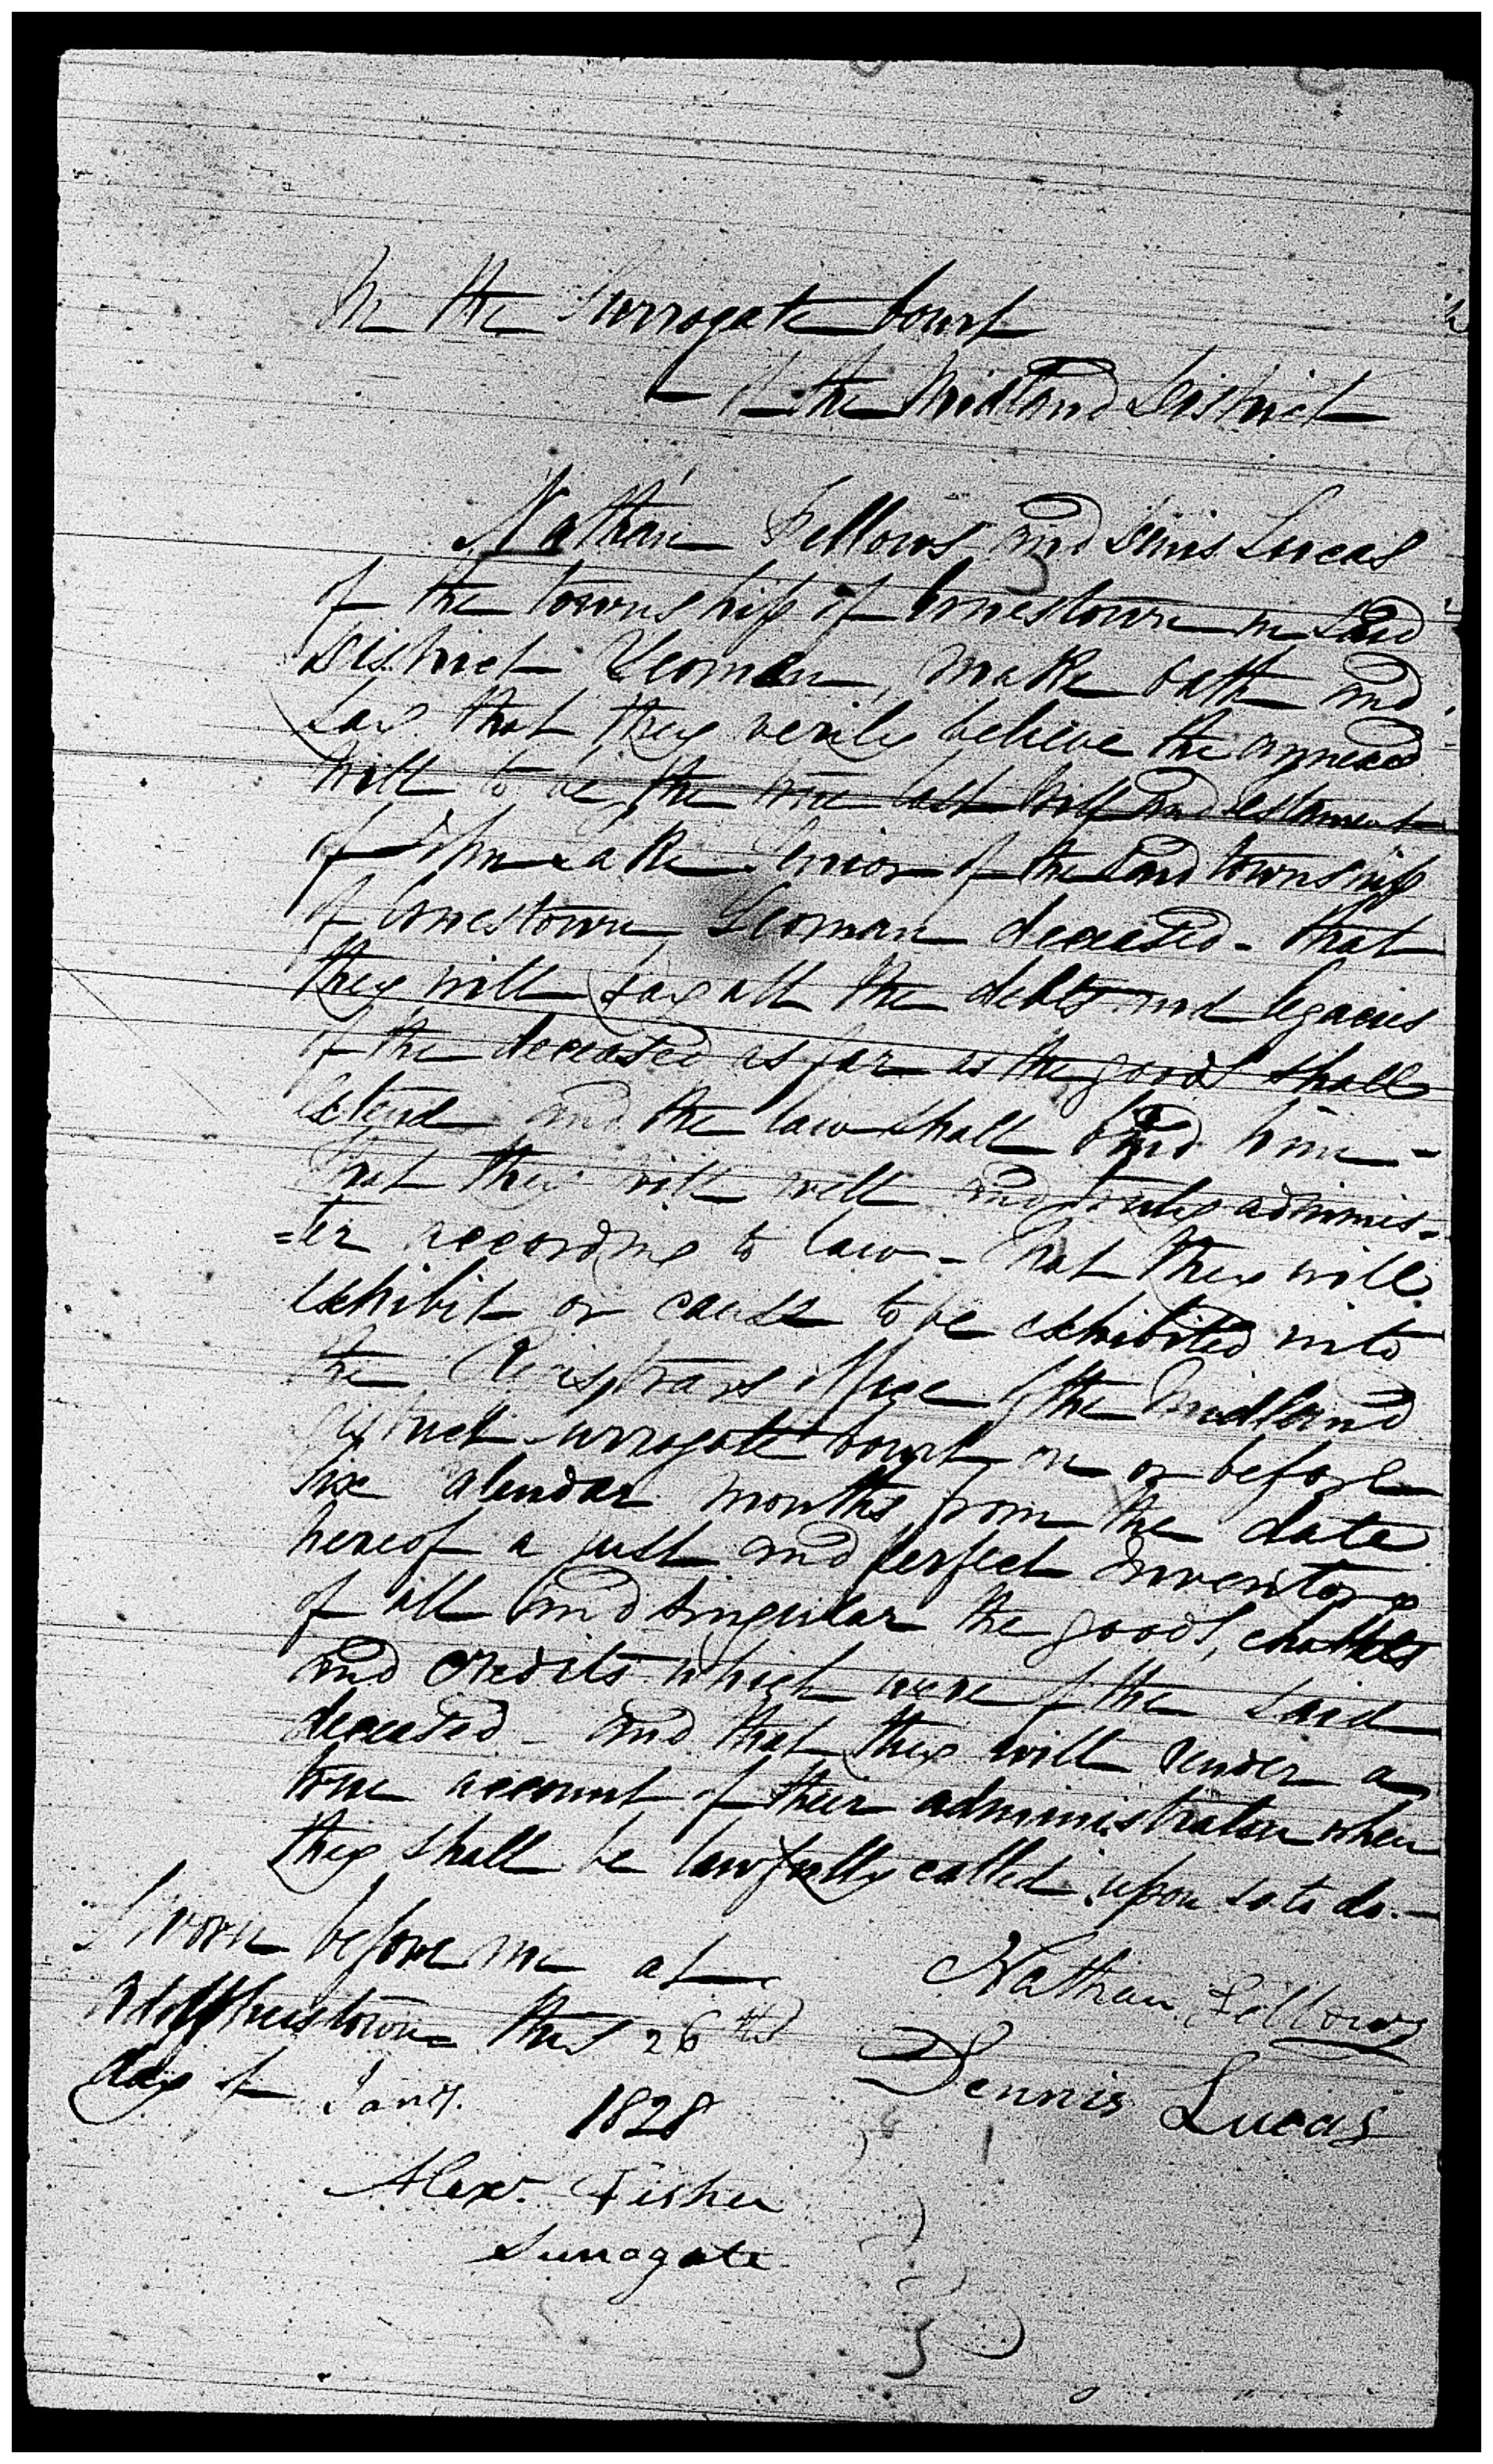 In the Surrogate Court
of the Midland District
Nathan Fellows and Denis Lucas
of the township of Ernestown in said
District Yeomen, make oath and
say that they verily believe the annexed
will to be the true last will and testament
of John Lake Senior of the said township
of Ernestown Yeoman deceased - that
they will pay all the debts and legacies
of the deceased as far as the goods shall
extend and the law shall bind him -
that they will well and truly adminis-
=ter according to law - that they will
exhibit or cause to be exhibited into
the Registrars office of the Midland
District Surrogate Court on or before
six calendar months from the date
hereof a just and perfect Inventory
of all and singular the goods, chattels
and credits which were of the said
deceased - and that they will render a
true account of their administration when
they shall be lawfully called upon so to do. -
Sworn before me at
Adolphustown this 26th
day of Jany. 1828
Nathan Fellows
Dennis Lucas
Alexr. Fisher
Surrogate